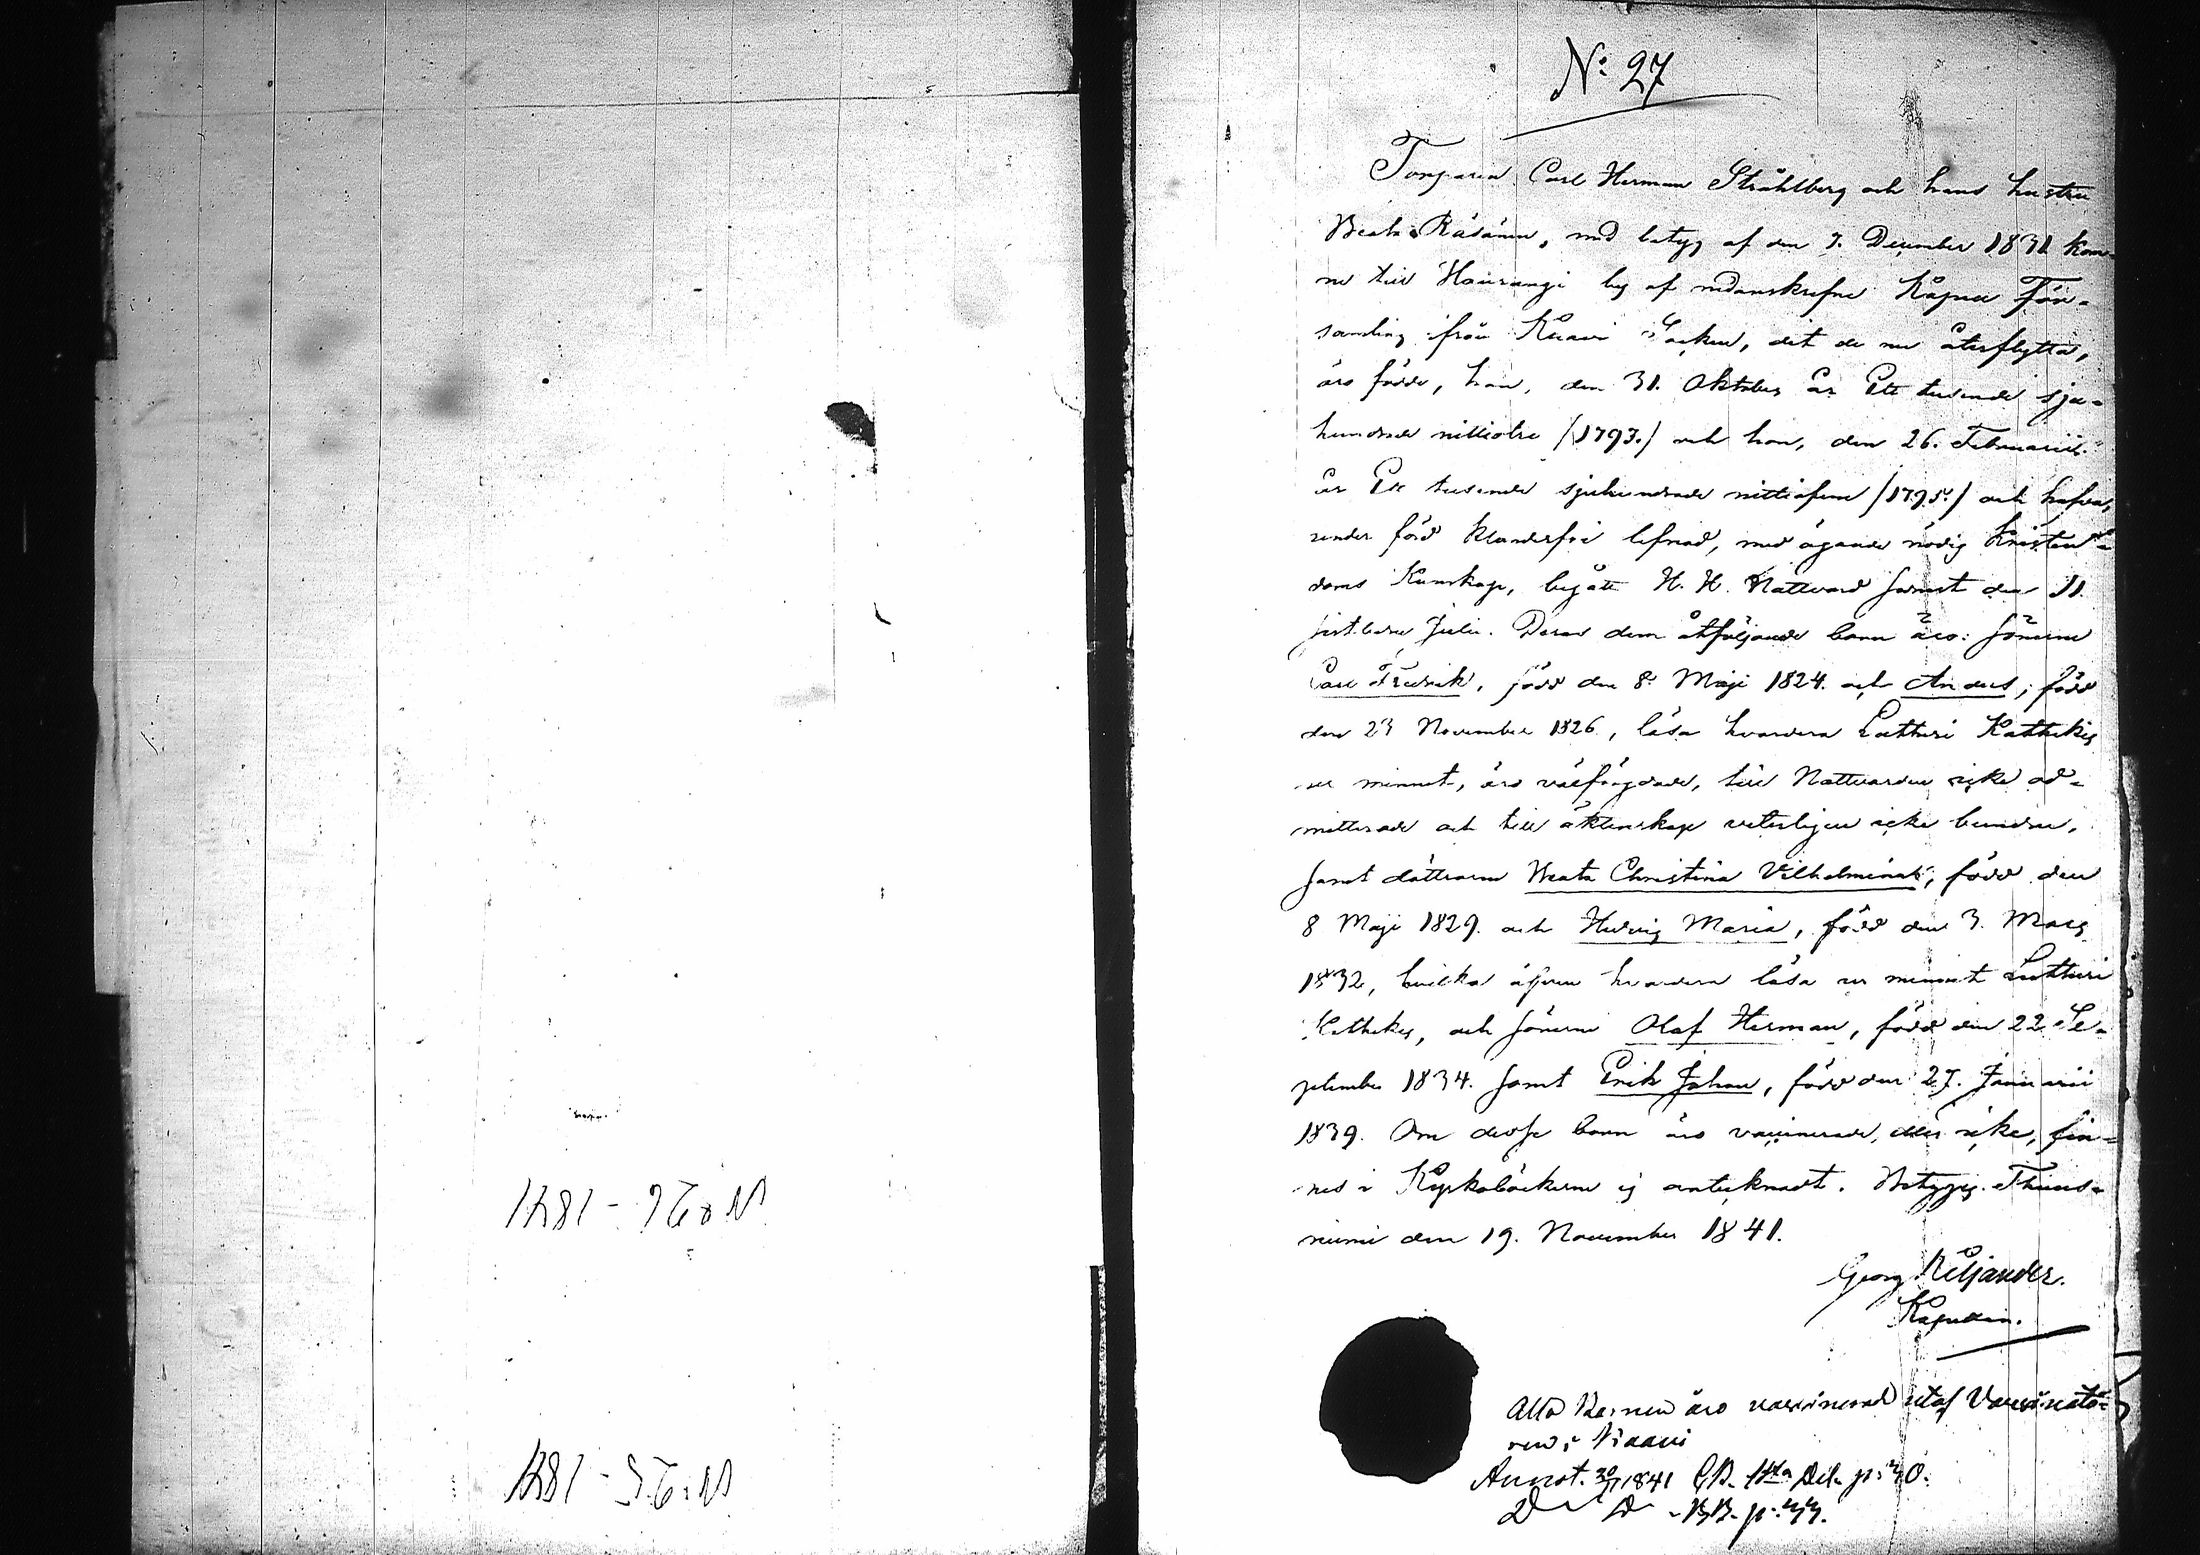 No: 27
Torparen Carl Herman Stråhlberg och hans hustru
Beata Räsänen, med betyg af den 7. December 1831 kom-
ne till Haurangi by af nedanskrefne Kapell För-
samling från Kiuavi Socken, dit de nu återflytta,
äro födde, han, den 31. Oktober år Ett tusende sju-
hundrade nittiotre /1793./ och hon, den 26. Februarii
år Ett tusende sjuhundrade nittiofem /1795./ och hafva,
under förd klanderfri lefnad, med ägande nödig Kristen-
doms Kunskap, begått H. H. Nattvard samt den 11.
sistledne Julii. Deras dem åtföljande barn äro: Sönerne
Carl Fredrik, född den 8. Maji 1824. och Anders, född
den 23 November 1826, läsa hvardera Lutheri Kathekes
ur minnet, äro välfrägdade, till Nattvarden icke ad-
mitterade och till äktenskap veterligen icke bundne,
samt döttrarne Beata Christina Vilhelmina, född den
8 Maji 1829. och Hedvig Maria, född den 3. Mars
1832, hvilka äfven hvardera läsa ur minnet Lutheri
Kathekes, och sönerne Olaf Herman, född den 22 Se-
ptember 1834. samt Erik Johan, född den 27. Januarii
1839. Om desse barn äro vaccinerade, eller icke, fin-
nes i Kyrkoböckerne ej antecknadt. Betygas. Thuus-
niemi den 19. November 1841.
Georg Kiljander.
Kapellan.
Alla Barnen äro vaccinerade utaf Vaccinatö-
ren i Kiaavi
Annot. 30/11 1841 C.B. 1sta Del. p: 40.
D D - BB. p: 33.
No 26 - 1841
No: 25 - 1841